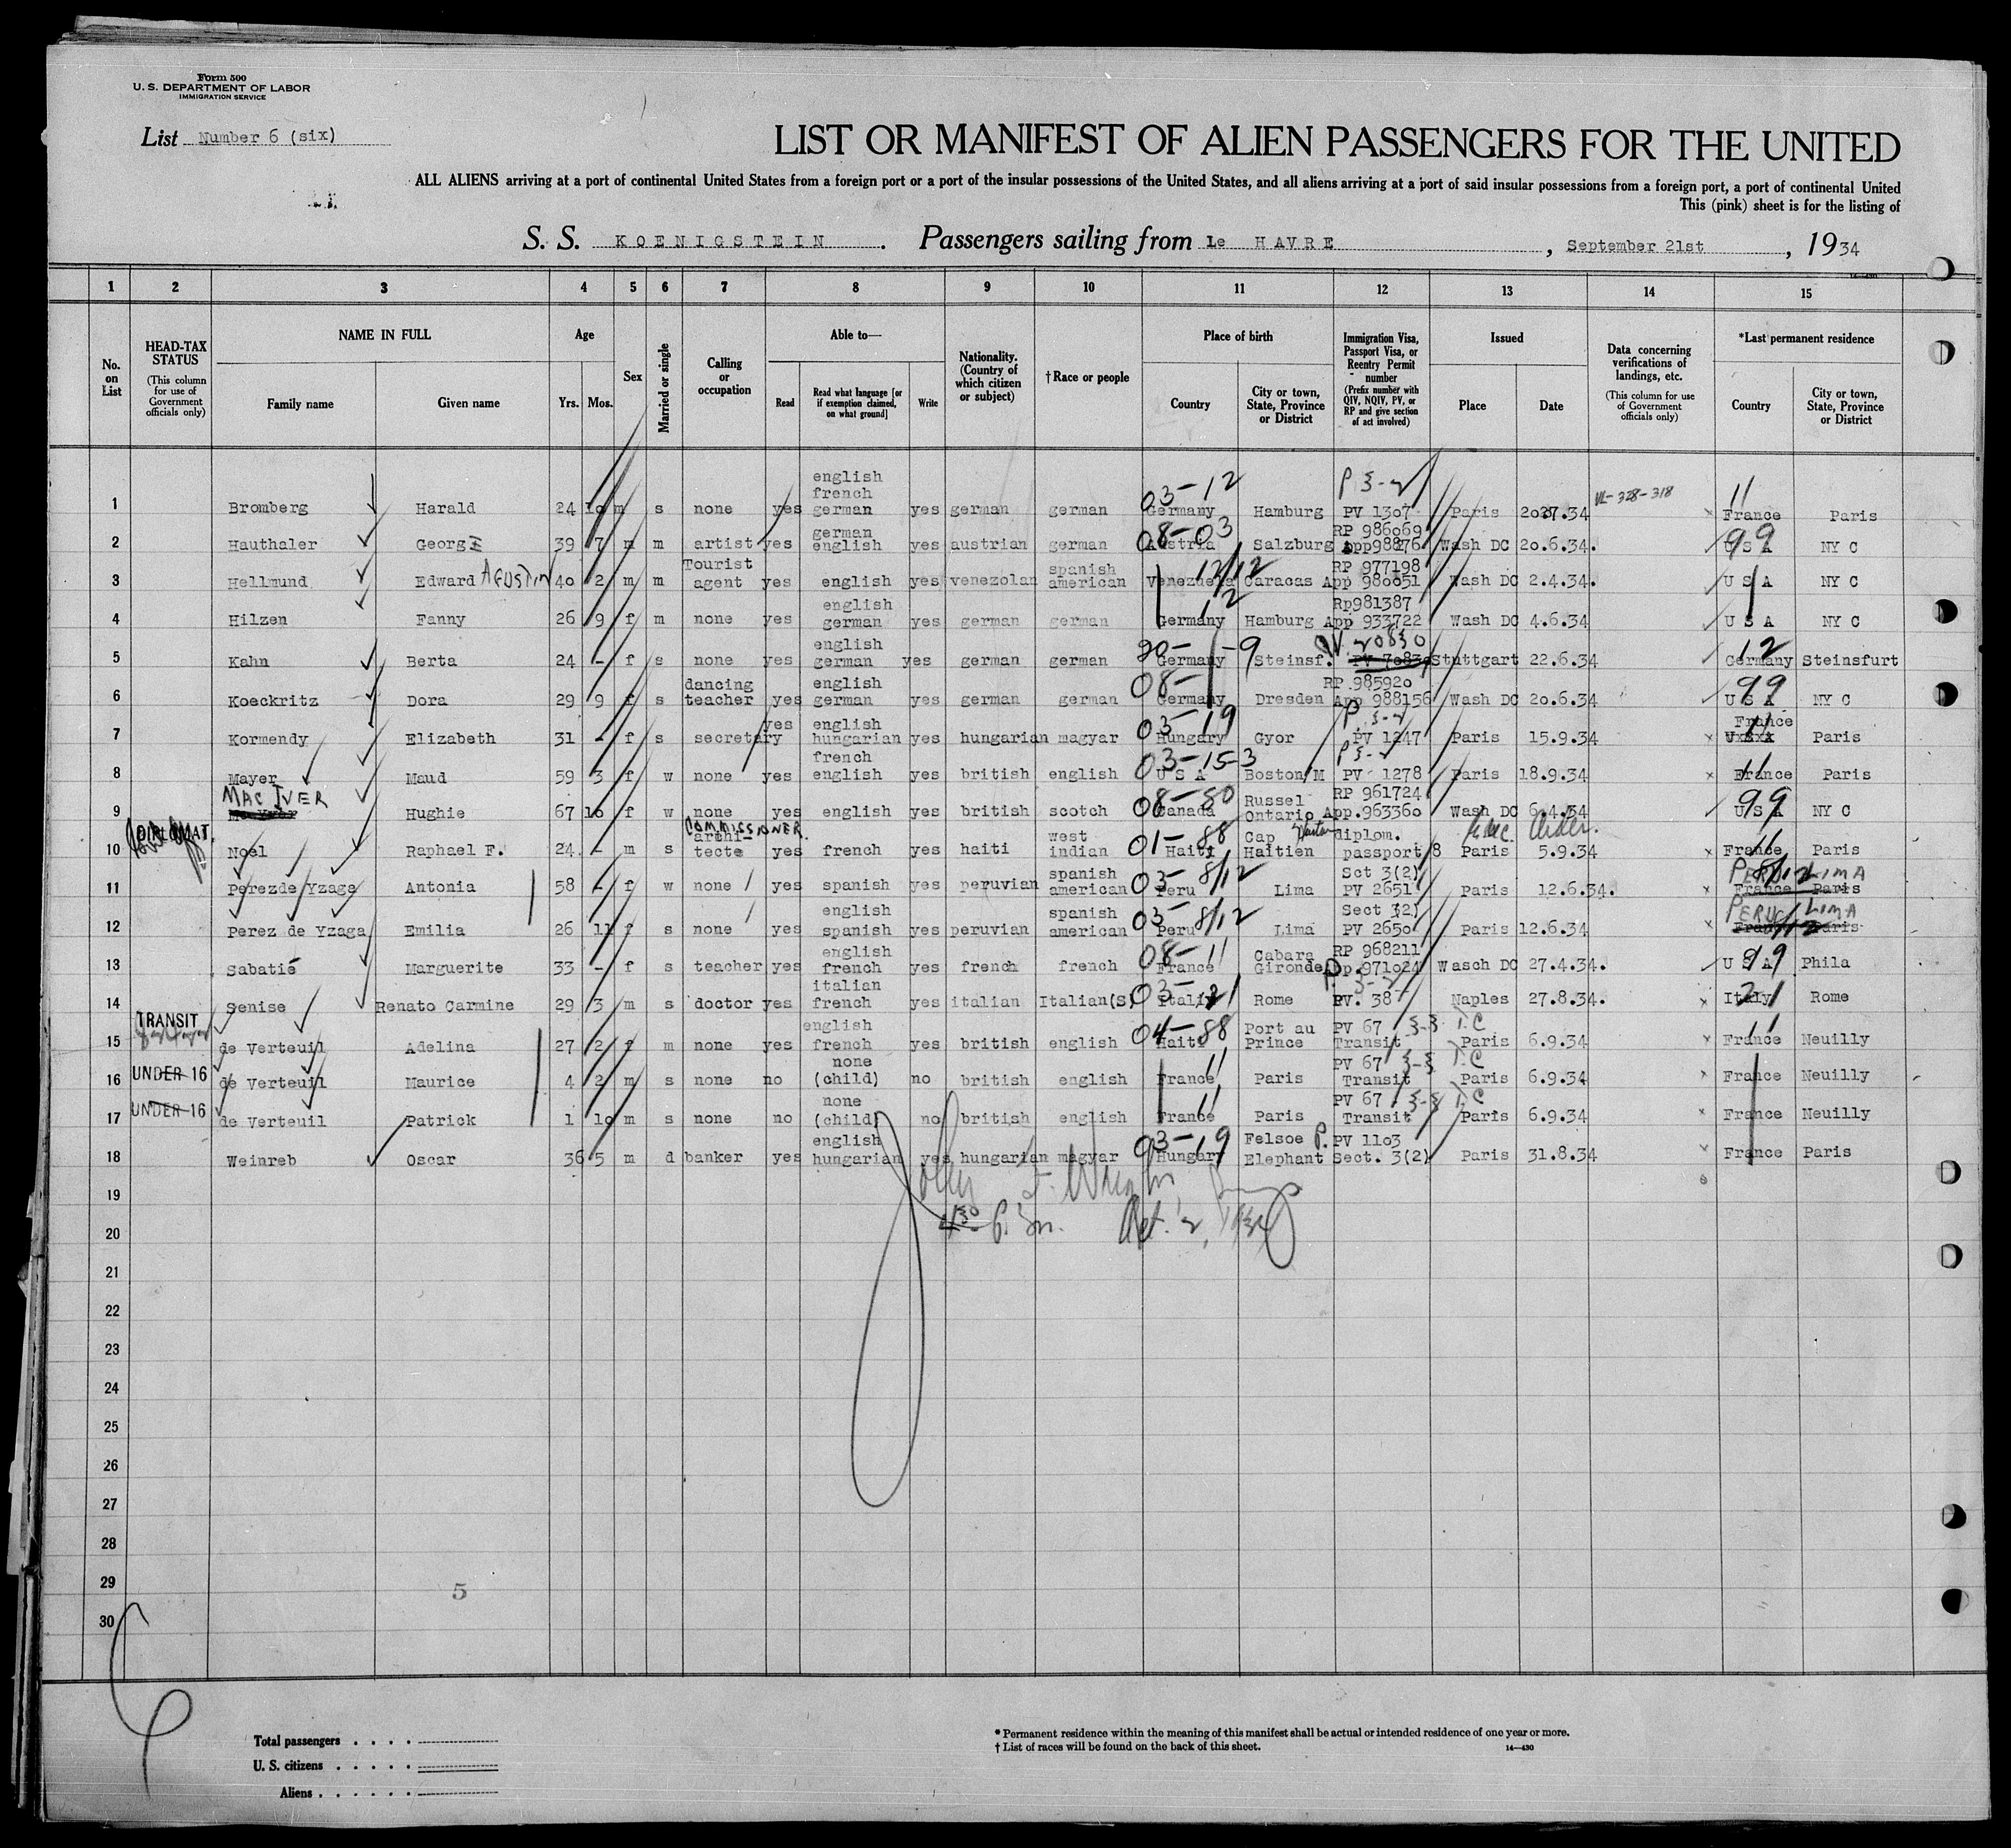 Form 500
U. S. DEPARTMENT OF LABOR
IMMIGRATION SERVICE
List Number 6 (six)
LIST OR MANIFEST OF ALIEN PASSENGERS FOR THE UNITED
ALL ALIENS arriving at a port of continental United States from a foreign port or a port of the insular possessions of the United States, and all aliens arriving at a port of said insular possessions from a foreign port, a port of continental United
This (pink) sheet is for the listing of
S. S. KOENIGSTEIN. Passengers sailing from Le HAVRE, September 21st, 1934
1 2 3 4 5 6 7 8 9 10 11 12 13 14 15
No. on List
HEAD-TAX STATUS (This column for use of Government officials only)
NAME IN FULL Family name Given name
Age Yrs. Mos.
Sex
Married or single
Calling or occupation
Able to— Read Read what language [or if exemption claimed, on what ground] Write
Nationality. (Country of which citizen or subject)
†Race or people
Place of birth Country City or town, State, Province or District
Immigration Visa, Passport Visa, or Reentry Permit number (Prefix number with QIV, NQIV, PV, or RP and give section of act involved)
Issued Place Date
Data concerning verifications of landings, etc. (This column for use of Government officials only)
*Last permanent residence Country City or town, State, Province or District
1 Bromberg Harald 24 10 m s none yes english french german yes german german 03-12 Germany Hamburg P 3-2 PV 1307 Paris 34 VL-328-318 11 France Paris
2 Hauthaler Georg 39 7 m m artist yes german english yes austrian german 08-03 Austria Salzburg RP 986069 App98876 Wash DC 20.6.34. 99 U S A NY C
3 Hellmund Edward AGUSTIN 40 2 m m Tourist agent yes english yes venezolan spanish american 12/12 Venezuela Caracas RP 977198 App 980051 Wash DC 2.4.34. U S A NY C
4 Hilzen Fanny 26 9 f m none yes english german yes german german 12 Germany Hamburg Rp981387 App 933722 Wash DC 4.6.34 U S A NY C
5 Kahn Berta 24 - f s none yes english german yes german german Germany Steinsf. Stuttgart 22.6.34 12 Germany Steinsfurt
6 Koeckritz Dora 29 9 f s dancing teacher yes english german yes german german 08- Germany Dresden RP 985920 App 988156 Wash DC 20.6.34 99 U S A NY C
7 Kormendy Elizabeth 31 - f s secretary yes english hungarian yes hungarian magyar 03-19 Hungary Gyor P 3-2 PV 1247 Paris 15.9.34 France Paris
8 Mayer Maud 59 3 f w none yes french english yes british english 03-15-3 U S A Boston M P 3-2 PV 1278 Paris 18.9.34 11 France Paris
9 MAC IVER Hughie 67 10 f w none yes english yes british scotch 08-80 Canada Russel Ontario RP 961724 App.963360 Wash DC 6.4.34 99 U S A NY C
10 DIPLOMAT Noel Raphael F. 24 - m s COMMISSIONER. archi-tecte yes french yes haiti west indian 01-88 Haiti Cap Haitien diplom. passport 8 Exec. Order. Paris 5.9.34 11 France Paris
11 Perezde Yzaga Antonia 58 - f w none yes spanish yes peruvian spanish american 03-8/12 Peru Lima Sct 3(2) PV 2651 Paris 12.6.34. PERU LIMA France Paris
12 Perez de Yzaga Emilia 26 11 f s none yes english spanish yes peruvian spanish american 03-8/12 Peru Lima Sect 3(2) PV 2650 Paris 12.6.34 PERU LIMA France Paris
13 Sabatié Marguerite 33 - f s teacher yes english french yes french french 08-11 France Cabara Gironde RP 968211 pp.971024 Wasch DC 27.4.34. 99 U S A Phila
14 Senise Renato Carmine 29 3 m s doctor yes italian french yes italian Italian(S) 03-21 Italy Rome P. 3-2 PV. 387 Naples 27.8.34. 21 Italy Rome
15 TRANSIT de Verteuil Adelina 27 2 f m none yes english french yes british english 04-88 Haiti Port au Prince PV 67 3-3 T.C Transit Paris 6.9.34 11 France Neuilly
16 UNDER 16 de Verteuil Maurice 4 2 m s none no none (child) no british english 11 France Paris PV 67 3-3 T.C Transit Paris 6.9.34 France Neuilly
17 UNDER 16 de Verteuil Patrick 1 10 m s none no none (child) no british english 11 France Paris PV 67 3-3 T.C Transit Paris 6.9.34 France Neuilly
18 Weinreb Oscar 36 5 m d banker yes english hungarian yes hungarian magyar 03-19 Hungary Felsoe Elephant P. PV 1103 Sect. 3(2) Paris 31.8.34 France Paris
19
20 Oct. 2, 1934
21
22
23
24
25
26
27
28
29
5
30
Total passengers . . . .
U. S. citizens . . . . .
Aliens . . . . . .
* Permanent residence within the meaning of this manifest shall be actual or intended residence of one year or more.
† List of races will be found on the back of this sheet.
14—430